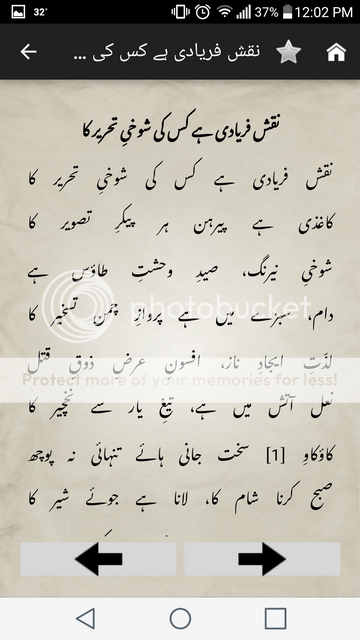 32°
37% 12:02 PM
نقش فریادی ہے کس کی ...
نقش فریادی ہے کس کی شوخیِ تحریر کا
نقش فریادی ہے کس کی شوخیِ تحریر کا
کاغذی ہے پیرہن ہر پیکرِ تصویر کا
شوخیِ نیرنگ، صیدِ وحشتِ طاؤس ہے
دام، سبزے میں ہے پروازِ چمن تسخیر کا
photobucket
لذّتِ ایجادِ ناز، افسونِ عرضِ ذوقِ قتل
Protect more of your memories for less!
نعل آتش میں ہے، تیغِ یار سے نخچیر کا
کاؤکاوِ [1] سخت جانی ہائے تنہائی نہ پوچھ
صبح کرنا شام کا، لانا ہے جوئے شیر کا